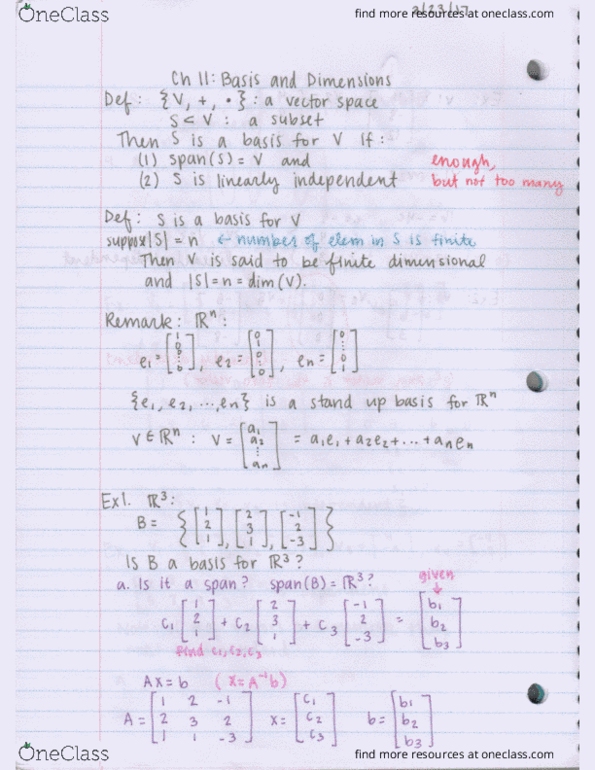 OneClass
find more resources at oneclass.com
2/23/17
Ch 11: Basis and Dimensions
Def: {V, +, •} : a vector space
S < V : a subset
Then S is a basis for V if:
(1) span(S) = V and
enough,
(2) S is linearly independent
but not too many
Def: S is a basis for V
suppose |S| = n ← number of elem in S is finite
Then V is said to be finite dimensional
and |S| = n = dim(V).
Remark: ℝⁿ:
e₁ = [1 0 0 0], e₂ = [0 1 0 0], eₙ = [0 0 ⋮ 0 1]
{e₁, e₂, ..., eₙ} is a stand up basis for ℝⁿ
V ∈ ℝⁿ : V = [a₁ a₂ ⋮ aₙ] = a₁e₁ + a₂e₂ + ... + aₙeₙ
Ex1. ℝ³:
B = { [1 2 1], [2 3 1], [-1 2 -3] }
Is B a basis for ℝ³?
a. Is it a span? span(B) = ℝ³?
given
↓
c₁ [1 2 1] + c₂ [2 3 1] + c₃ [-1 2 -3] = [b₁ b₂ b₃]
find c₁, c₂, c₃
AX = b (X = A⁻¹b)
A = [1 2 -1
2 3 2
1 1 -3] X = [c₁ c₂ c₃] b = [b₁ b₂ b₃]
OneClass
find more resources at oneclass.com